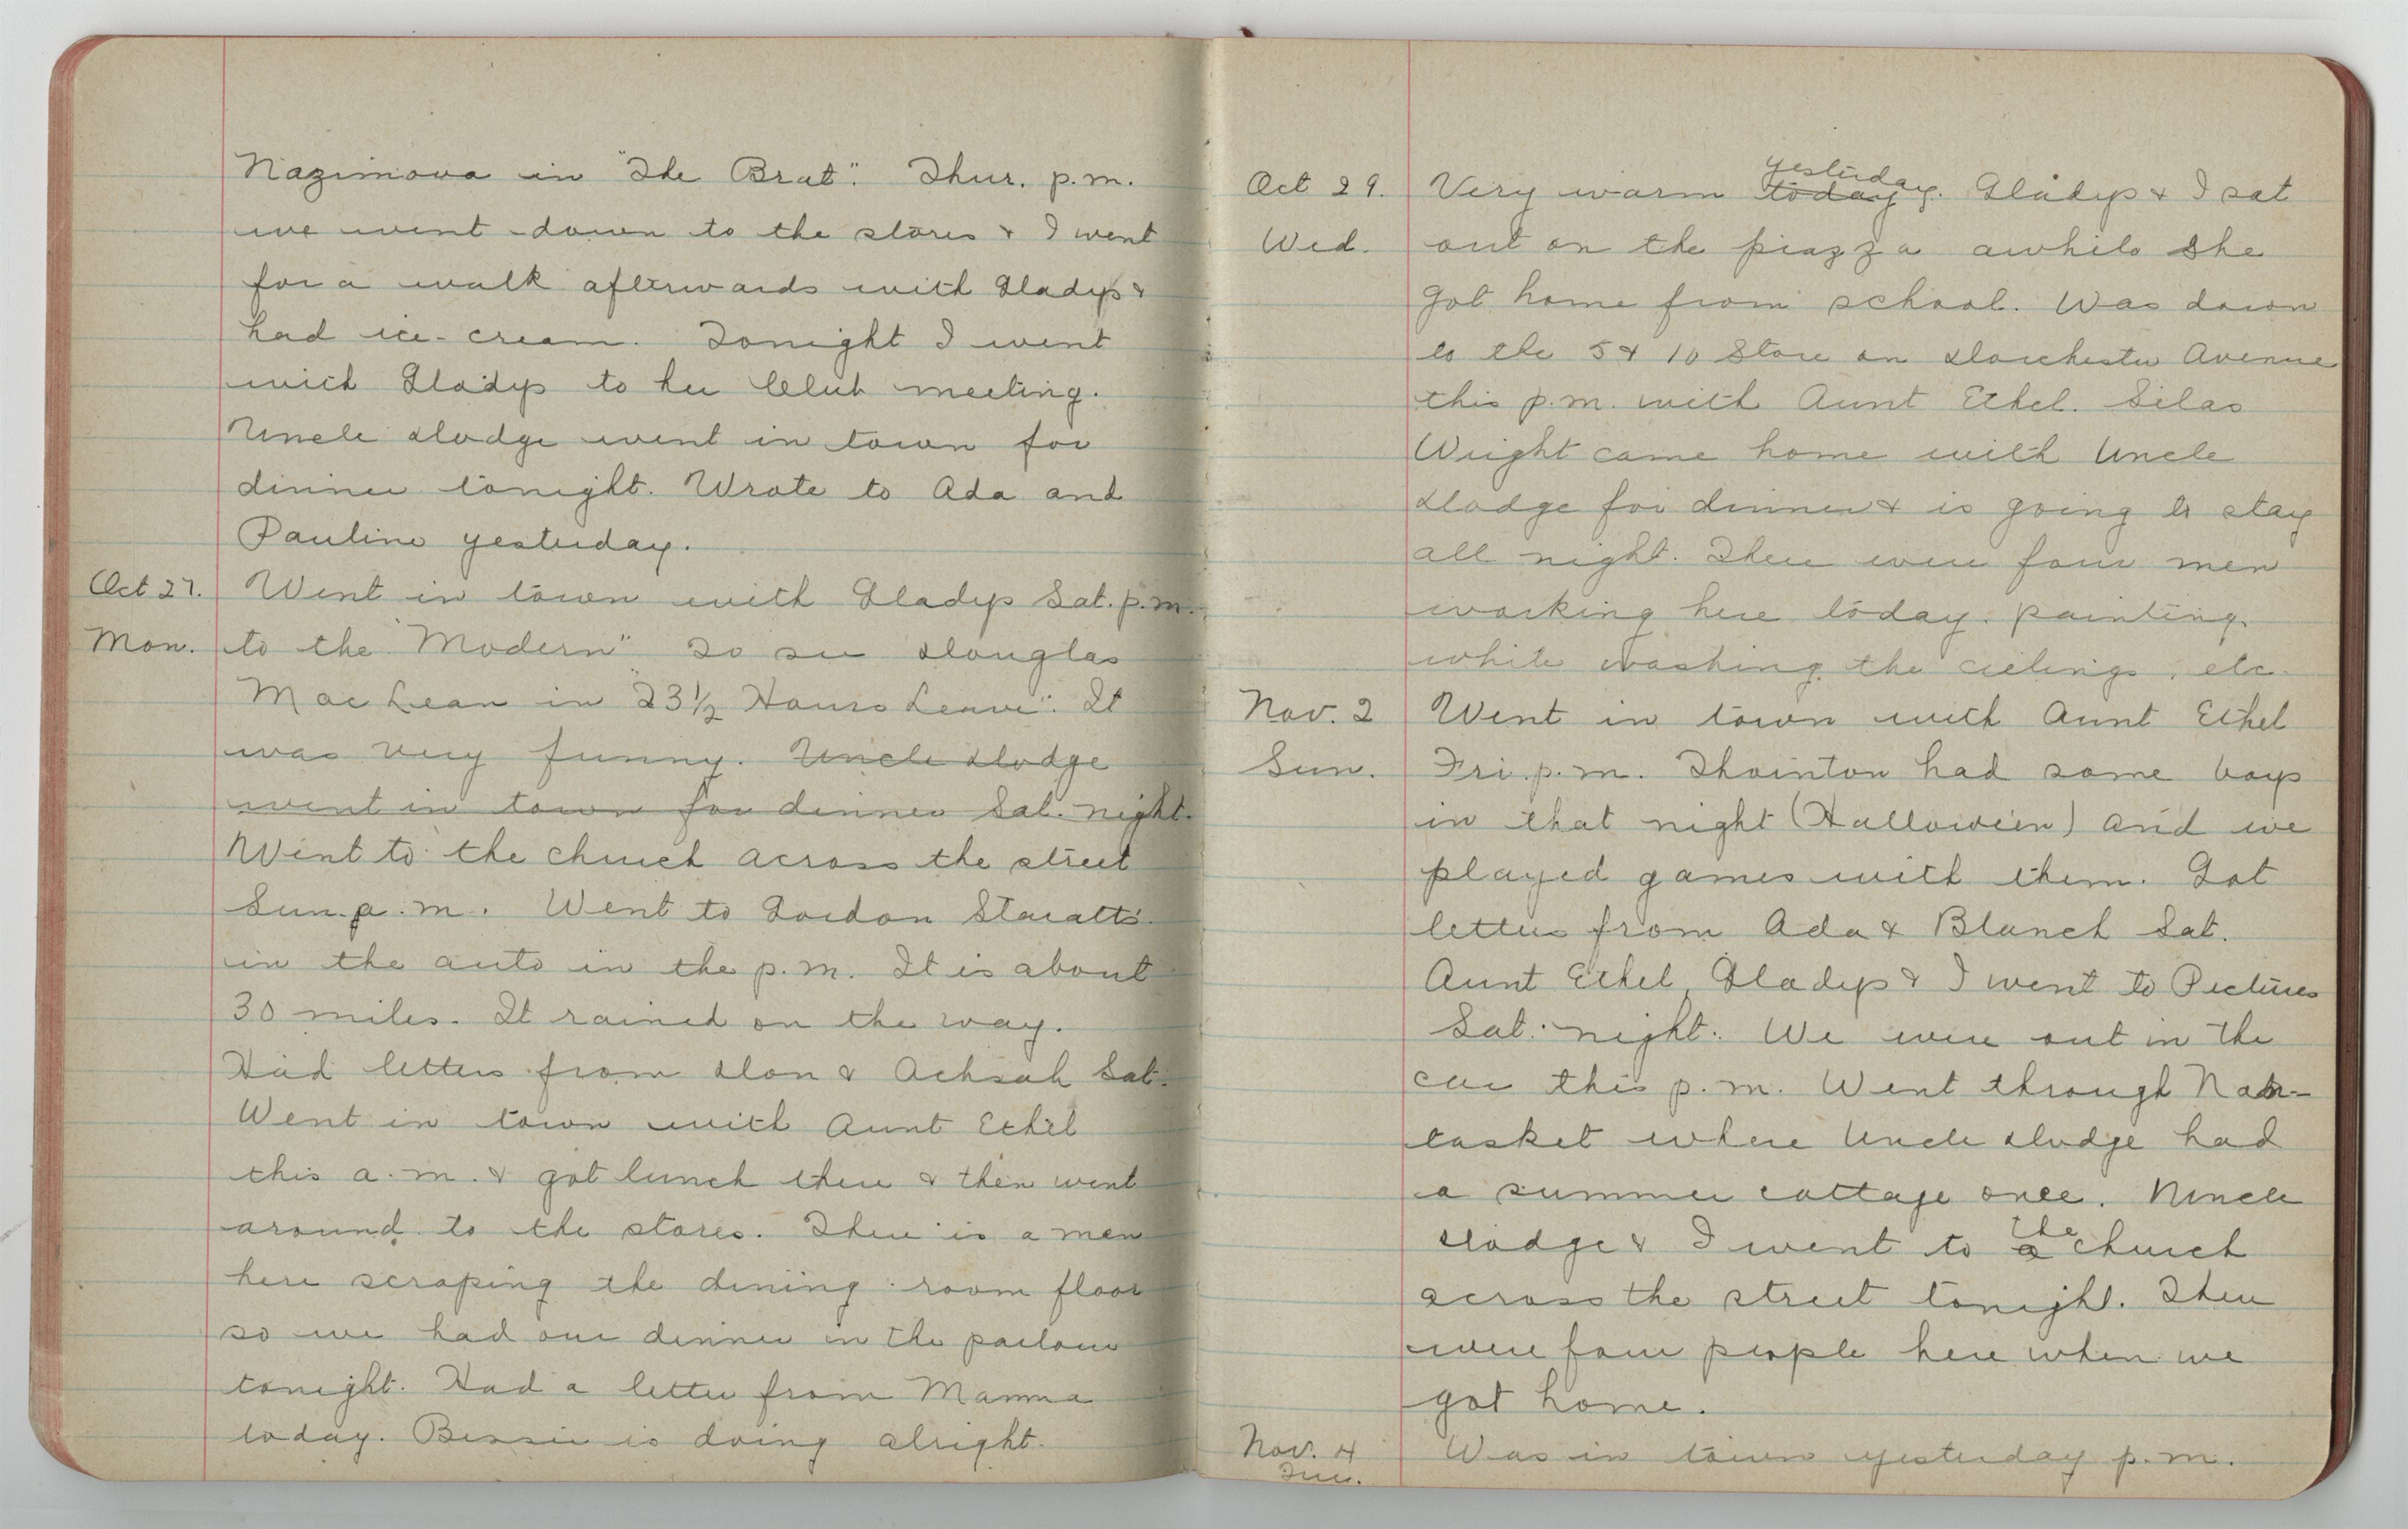 Nazimova in "The Brat". Thur. p.m.
we went down to the stores & I went
for a walk afterwards with Gladys &
had ice-cream. Tonight I went
with Gladys to her Club meeting.
Uncle Dodge went in town for
dinner tonight. Wrote to Ada and
Pauline yesterday.
Oct 27. Went in town with Gladys Sat. p.m.
Mon. to the "Modern" to see Douglas
MacLean in "23½ Hours Leave". It
was very funny. Uncle Dodge
went in town for dinner Sat. night.
Went to the church across the street
Sun. a.m. Went to Gordon Staratts
in the auto in the p.m. It is about
30 miles. It rained on the way.
Had letters from Don & Achsah Sat.
Went in town with Aunt Ethel
this a.m. & got lunch there & then went
around to the stores. There is a man
here scraping the dining room floor
so we had our dinner in the parlour
tonight. Had a letter from Mamma
today. Bessie is doing alright.
Oct 29. Very warm today yesterday. Gladys & I sat
Wed. out on the piazza awhile she
got home from school. Was down
to the 5 & 10 Store on Dorchester Avenue
this p.m. with Aunt Ethel. Silas
Wright came home with Uncle
Dodge for dinner & is going to stay
all night. There were four men
working here today. painting,
white washing the cielings, etc.
Nov. 2 Went in town with Aunt Ethel
Sun. Fri. p.m. Thornton had some boys
in that night (Hallowe'en) and we
played games with them. Got
letters from Ada & Blanch Sat.
Aunt Ethel, Gladys & I went to Pictures
Sat. night. We were out in the
car this p.m. Went through Nan-
tasket where Uncle Dodge had
a summer cottage once. Uncle
Dodge & I went to a the church
across the street tonight. There
were four people here when we
got home.
Nov. 4 Was in town yesterday p.m.
Tue.